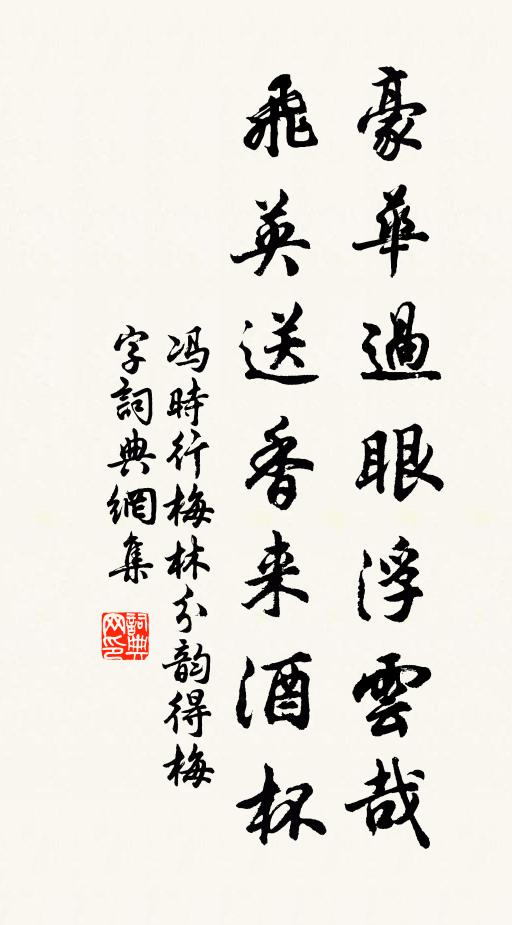 豪華過眼浮雲哉
飛英送香来酒杯
冯時行梅林分韵得梅
字詞典網集
詞典网印